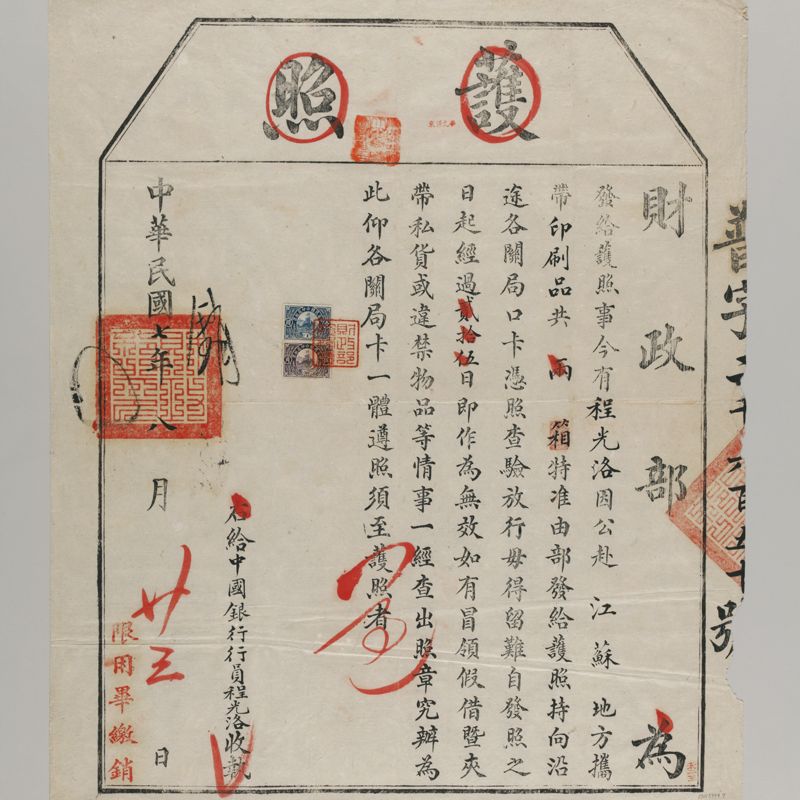 護照
普字二千六百五十號
財政部為
發給護照事今有程光洛因公赴江蘇地方攜
帶印刷品共兩箱特准由部發給護照持向沿
途各關局口卡憑照查驗放行毋得留難自發照之
日起經過貳拾伍日即作為無效如有冒領假借暨夾
帶私貨或違禁物品等情事一經查出照章究辦為
此仰各關局卡一體遵照須至護照者
財政部
右給中國銀行行員程光洛收執
中華民國七年八月廿三日
限用畢繳銷